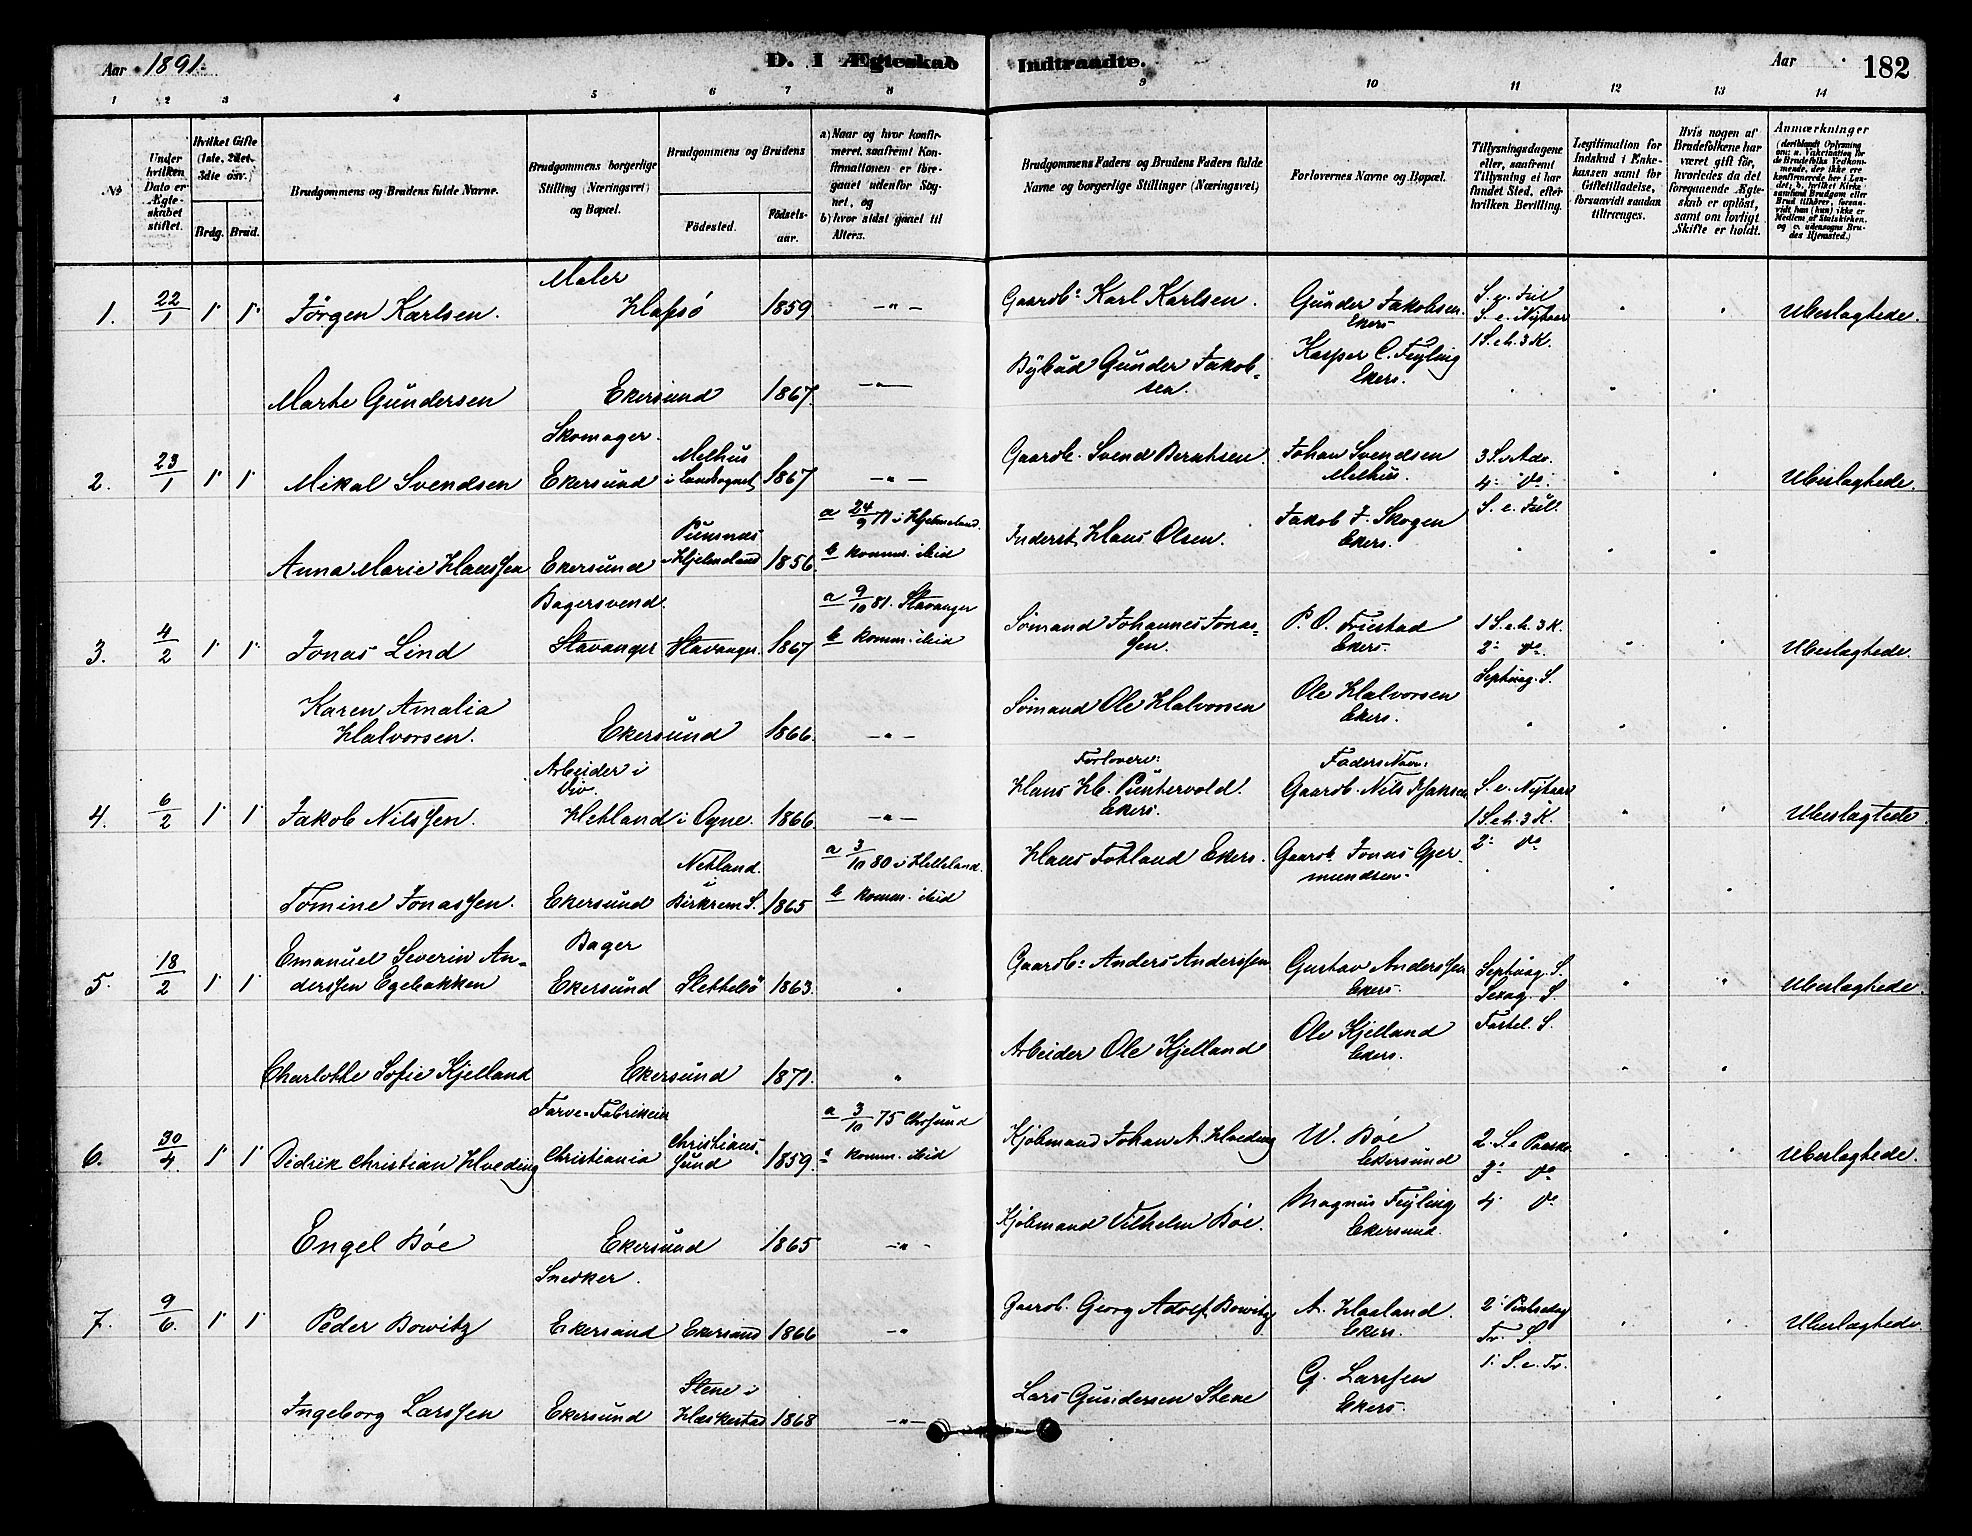 Aar 1891.
D. I Ægteskab Indtraadte.
Aar
182
1 2 3 4 5 6 7 8 9 10 11 12 13 14
No
Under hvilken Dato er Ægteskabet stiftet.
Hvilket Gifte (1ste, 2det, 3die osv.)
Brdg. Brud.
Brudgommens og Brudens fulde Navne.
Brudgommens borgerlige Stilling (Næringsvei) og Bopæl.
Brudgommens og Brudens
Födested. Födselsaar.
a) Naar og hvor konfirmeret, saafremt Konfirmationen er foregaaet udenfor Sognet, og
b) hvor sidst gaaet til Alters.
Brudgommens Faders og Brudens Faders fulde Navne og borgerlige Stillinger (Næringsvei)
Forlovernes Navne og Bopæl.
Tillysningsdagene eller, saafremt Tillysning ei har fundet Sted, efter hvilken Bevilling.
Legitimation for Indskud i Enkekassen samt for Giftetilladelse, forsaavidt saadan tiltrænges.
Hvis nogen af Brudefolkene har været gift för, hvorledes da det foregaaende Ægteskab er oplöst, samt om lovligt Skifte er holdt.
Anmærkninger (deriblandt Oplysning om: a. Vakcination for de Brudefolks Vedkommende, der ikke ere konfirmerede her i Landet; b. hvilket Kirkesamfund Brudgom eller Brud tilhører, forsaavidt han (hun) ikke er Medlem af Statskirken, og c. udensogns Brudes Hjemsted.)
Maler
1. 22/1 1 1 Jörgen Karlsen. Hafsö 1859 - " - Gaardb: Karl Karlsen. Gunder Jakobsen. Ekers S. e. Jul S. e. Nytaar 1 S. e. h. 3 K. Ubeslægtede.
Marte Gundersen Ekersund 1867. - " - Bybud Gunder Jakobsen. Kasper C. Feyling Ekers.
Skomager.
2. 23/1 1 1 Mikal Svendsen Ekersund Melhus i Landsognet 1867 - " - Gaardb. Svend Berntsen. Johan Svendsen Melhus. 3 S. i Adv. 4 " Do. S. e. Jul. Ubeslægtede.
Anna Marie Hanssen Ekersund Hjelmeland 1856. a 24/9 71 i Hjelmeland. b komm. ibid Inderst. Hans Olsen. Jakob J. Skogen Ekers.
Bagersvend.
3. 4/2 1 1 Jonas Lind Stavanger Stavanger. 1867 a 9/10 81. Stavanger b komm. ibid Sömand Johannes Jonassen. P. O. Friestad Ekers. 1 S. e. h. 3 K. 2 " Do. Septuag. S. Ubeslægtede.
Karen Amalia Halvorsen. Ekersund 1866. - " - Sömand Ole Halvorsen Ole Halvorsen Ekers.
Arbeider i
4. 6/2 1 1 Jakob Nilssen. Hetland i Ogne. 1866. - " - Forlovere: Hans H. Puntervold. Ekers. Faders Navn: Gaardb. Nils S. e. Nytaar 1 S. e. h. 3 K. 2 " Do Ubeslægtede.
Tomine Jonassen. Ekersund Netland. i Birkrem S. 1865 a 3/10 80 i Helleland. b komm. ibid Hans Fotland Ekers. Gaardb. Jonas Gjermundsen.
Bager
5. 18/2 1 1 Emanuel Severin Anderssen Egebakken Ekersund Slettebö 1863. " Gaardb: Anders Anderssen Gustav Anderssen Ekers. Septuag. S. Sexag. S. Fastel. S. Ubeslægtede.
Charlotte Sofie Kjelland Ekersund 1871. " Arbeider Ole Kjelland Ole Kjelland Ekers.
Farve-Fabrikein
6. 30/4 1 1 Didrik Christian Hveding Christiania Christianssund 1859. a 3/10 75 Chrsund " komm. ibid Kjöbmand Johan A. Hveding W. Böe Ekersund 2. S. e Paaske 3 " Do 4. Do. Ubeslægtede.
Engel Böe Ekersund 1865 - " - Kjöbmand Vilhelm Böe. Magnus Feyling Ekersund.
Snedker.
7. 9/6. 1 1 Peder Bowitz Ekersund Ekersund 1866 - " Gaardb. Georg Adolf Bowitz A. Haaland. Ekers. 2' Pintsedag Tr. S. 1. S. e. Tr. Ubeslægtede
Ingeborg Larssen Ekersund Stene i Heskestad 1868 - " - Lars Gundersen Stene G. Larssen Ekers.